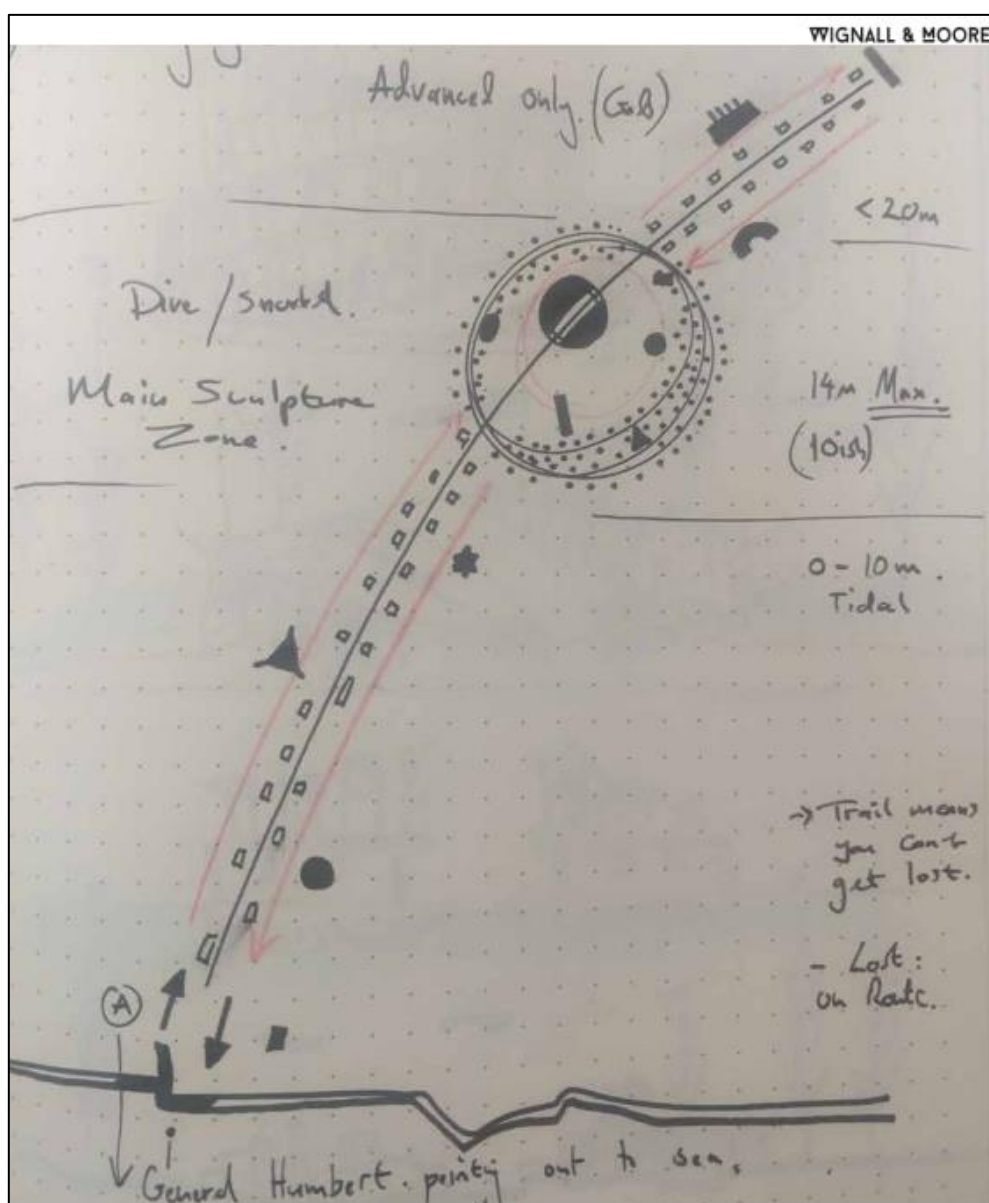 WIGNALL & MOORE
Advanced only. (GB)
< 20m
Dive / Snorkel.
Main Sculpture
Zone.
14m Max.
(10ish)
0 - 10m.
Tidal
→ Trail means
you can't
get lost.
- Lost:
on Route.
A
General Humbert. pointing out to sea.